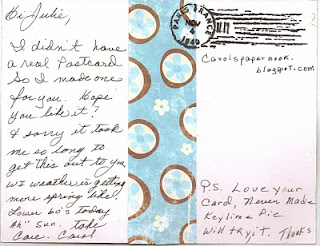 Hi Julie,
I didn't have
a real Postcard
So I made one
for you. Hope
you like it?
& sorry it took
me so long to
get this out to you,
WI weather is getting
more spring like.
Lower 60's today
Ah" Sun. take
Care. Carol
PARIS, FRANCE
NOV
4
1949
Carolspaperbook.
blogspot.com
PS. Love your
Card, Never Made
Keylime Pie
Will try it. Thanks